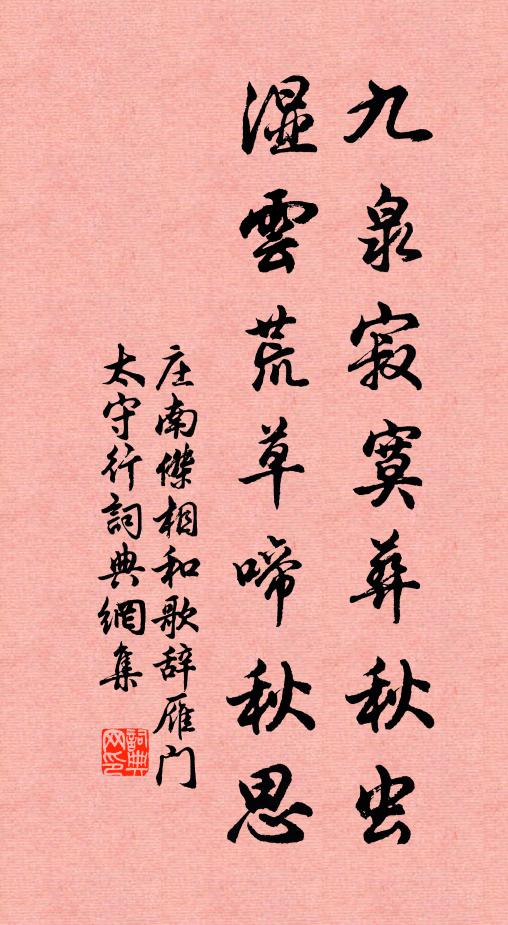 九泉寂寞葬秋虫
湿雲荒草啼秋思
庄南傑相和歌辞雁门
太守行詞典網集
詞典网印